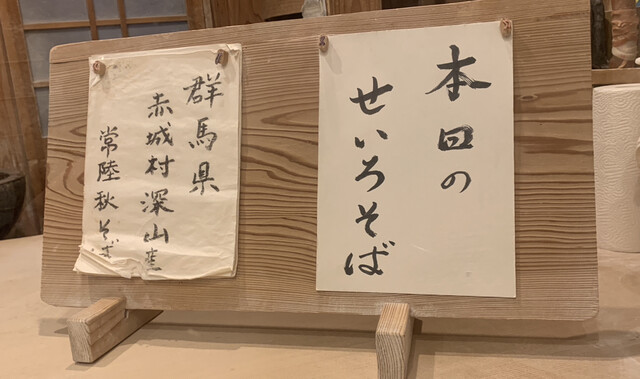 本回の
せいろそば
群馬県
赤城村深山産
常陸秋そば